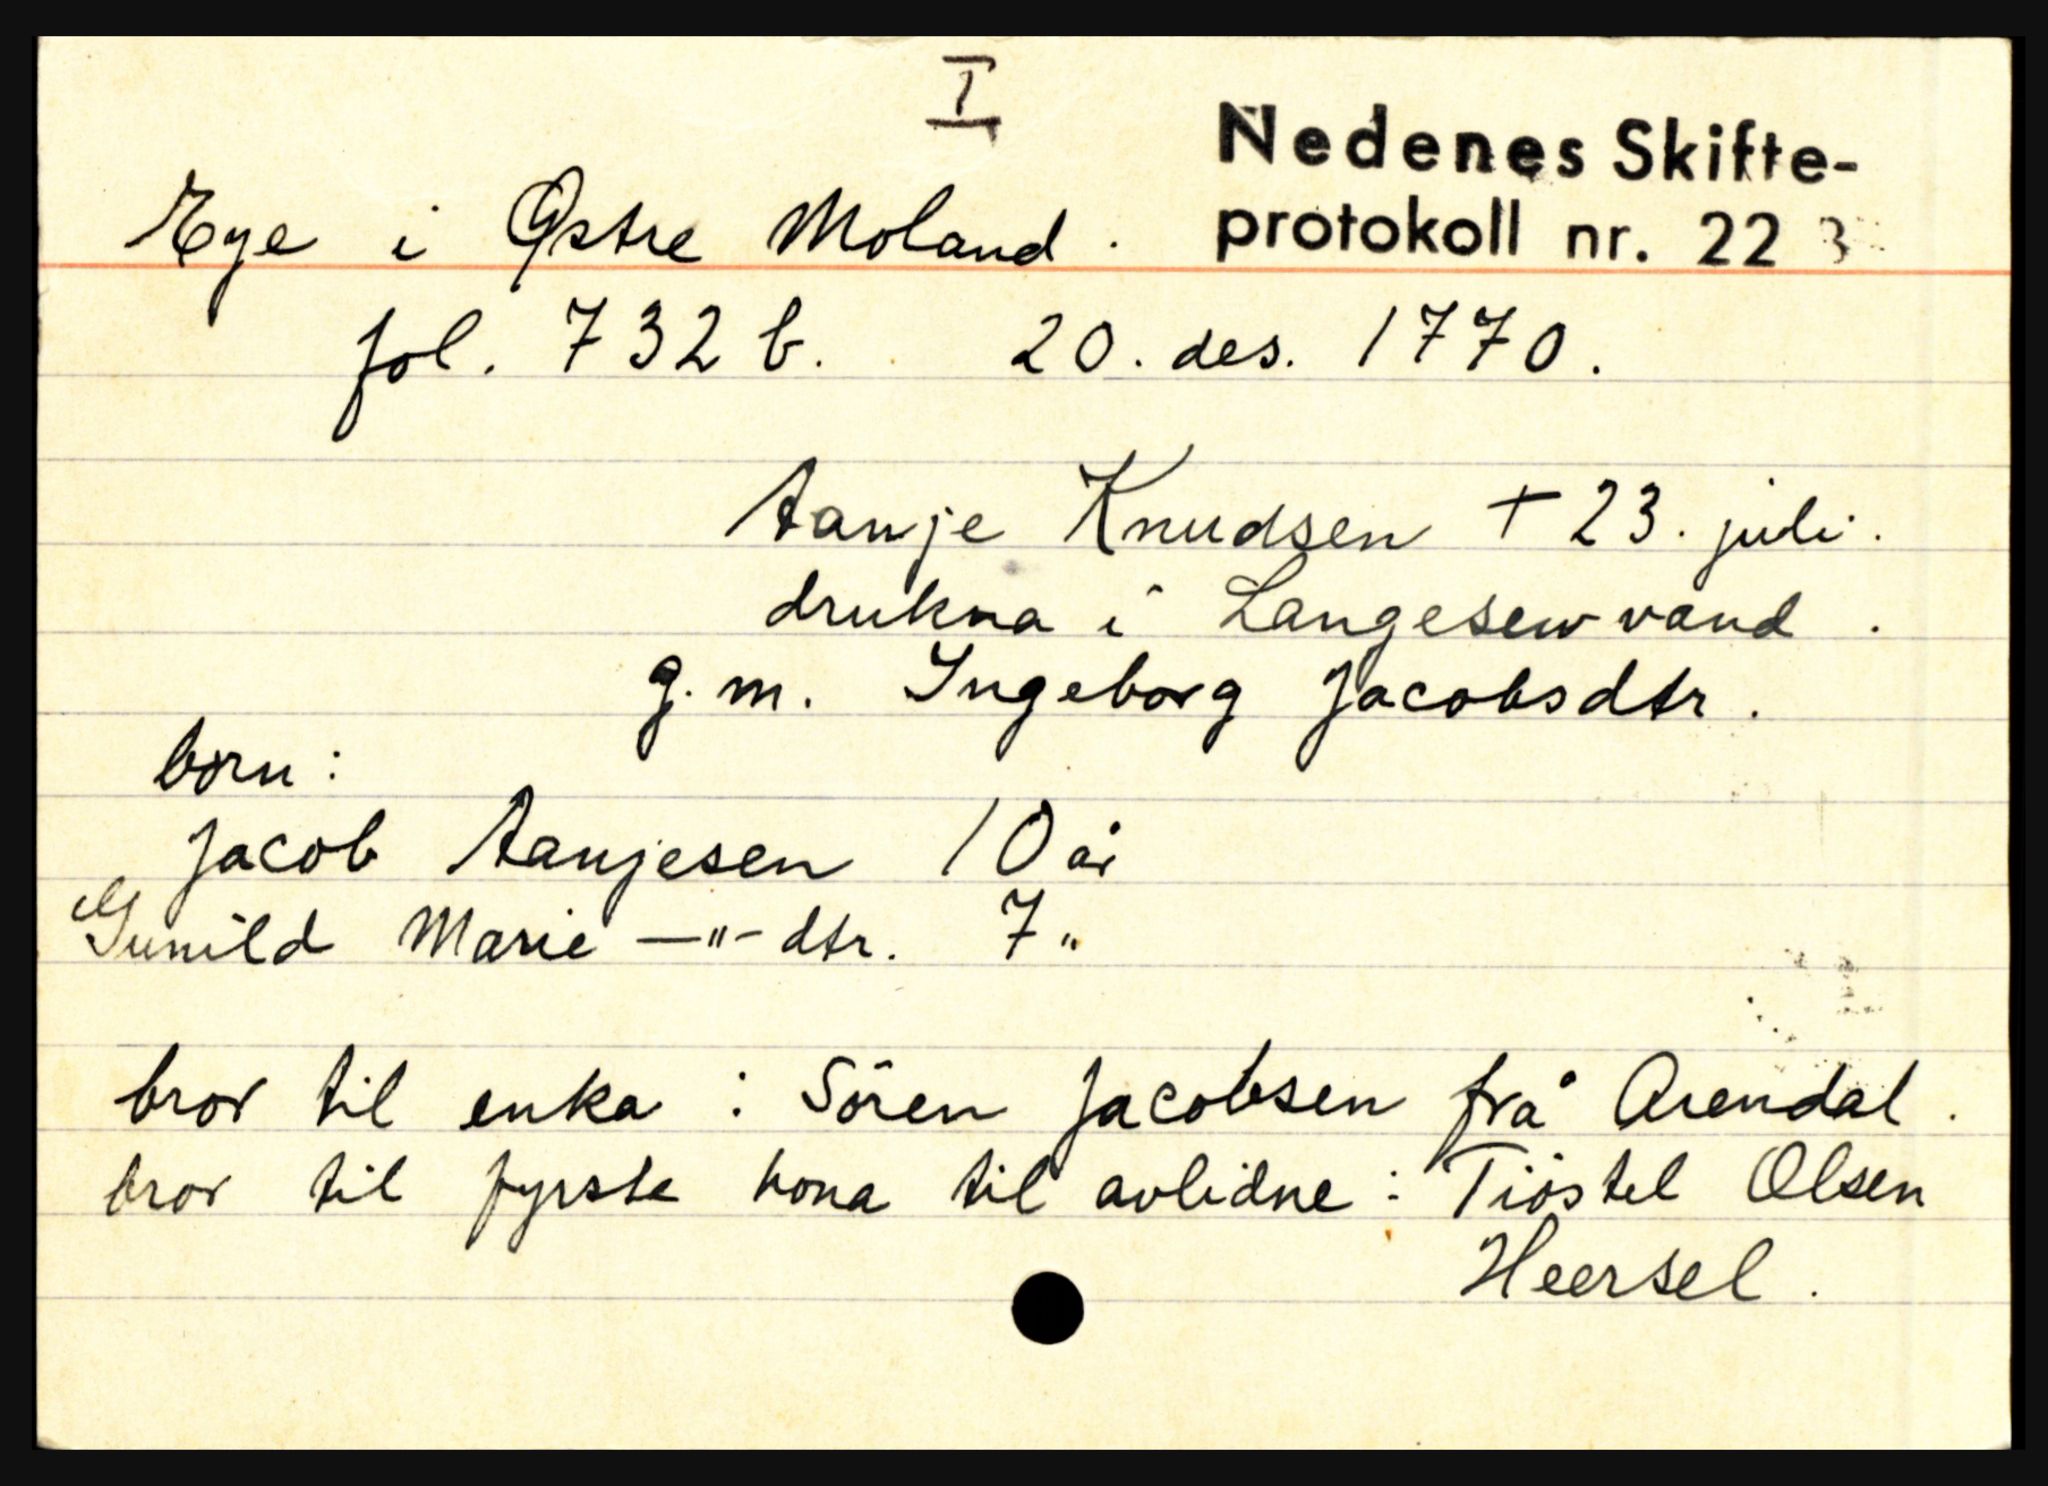 I
Nedenes Skifte-
protokoll nr. 22
Eye i Østre Moland.
fol. 732 b. 20. des. 1770.
Aanje Knudsen + 23. juli.
drukna i Langesew vand.
g. m. Ingeborg Jacobsdtr.
born:
Jacob Aanjesen 10 år
Gunild Marie —"- dtr. 7 "
bror til enka : Sören Jacobsen frå Arendal.
bror til fyrste kona til avlidne : Tiöstel Olsen
Heersel.